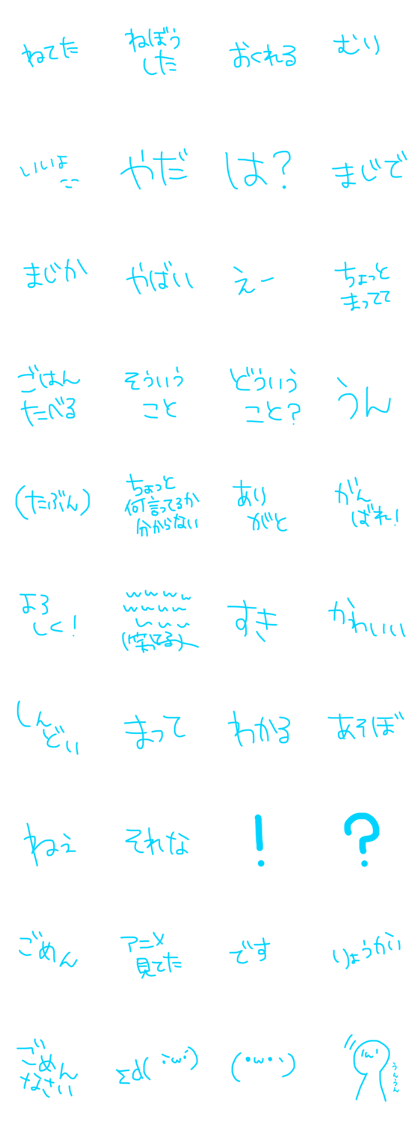 ねてた
ねぼう
した
おくれる
むり
いいよ
やだ
は?
まじで
まじか
やばい
えー
ちょっと
まってて
ごはん
たべる
そういう
こと
どういう
こと?
うん
(たぶん)
ちょっと
何言ってるか
分からない
あり
がと
がん
ばれ!
よろ
しく!
wwww
wwww
www
すき
かわいい
しん
どい
まって
わかる
あそぼ
ねぇ
それな
!
?
ごめん
アニメ
見てた
です
りょうかい
ごめん
なさい
Σd(˙꒳˙)
(・w・)
うんうん